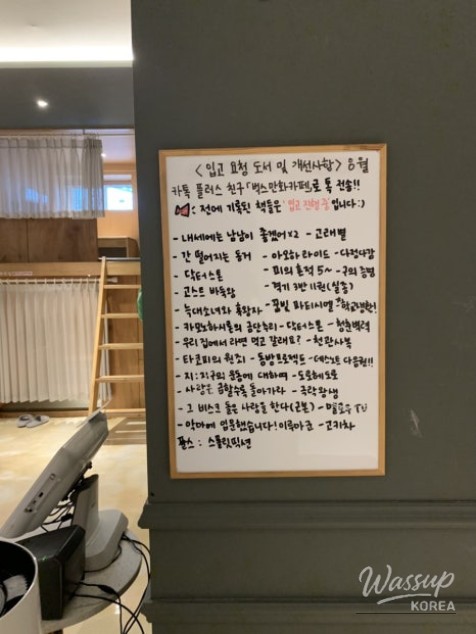 <입고 요청 도서 및 개선사항> 8월
카톡 플러스 친구「벅스만화카페」로 톡 전송!!
: 전에 기록된 책들은 '입고 진행 중'입니다:)
- 내세에는 남남이 좋겠어 x2 - 고래별
- 간 떨어지는 동거 - 아오하라이드 - 다정다감
- 닥터스톤 - 피의 흔적 5~ - 구의 증명
- 고스트 바둑왕 - 경기 3반 11권(실종)
- 늑대소녀와 흑왕자 - 꿈빛 파티시엘 - 학교생활!
- 카모노하시 론의 금단추리 - 닥터스톤 - 청춘백력
- 우리 집에서 라면 먹고 갈래요? - 천관사복
- 타코피의 원죄 - 동방프로젝트 - 데스노트 다음편!!
- 지: 지구의 운동에 대하여 - 도로헤도로
- 사랑은 금할수록 돌아가라 - 극락왕생
- 그 비스크 돌은 사랑을 한다(근본)
- 악마에 입문했습니다! 이루마 군 - 고카차
펄스 : 스플릿픽션
Wassup
KOREA